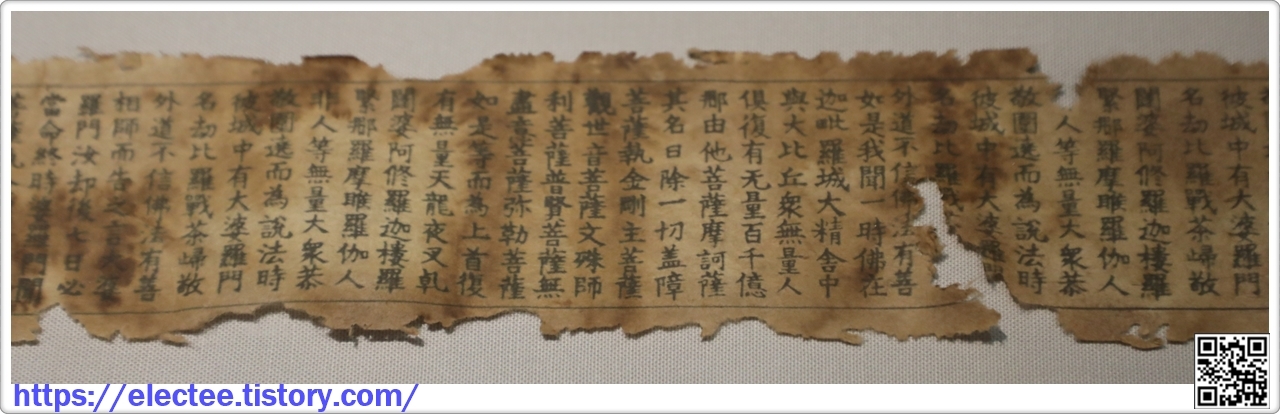 彼城中有大婆羅門
名劫比羅戰茶歸敬
闥婆阿修羅迦樓羅
緊那羅摩睺羅伽人
人等無量大衆恭
敬圍遶而為說法時
彼城中有大婆羅
名劫比羅
外道不信佛法有善
如是我聞一時佛在
迦毗羅城大精舍中
與大比丘衆無量人
俱復有无量百千億
那由他菩薩摩訶薩
其名曰除一切盖障
菩薩執金剛主菩薩
觀世音菩薩文殊師
利菩薩普賢菩薩無
盡意菩薩弥勒菩薩
如是等而為上首復
有無量天龍夜叉乹
闥婆阿修羅迦樓羅
緊那羅摩睺羅伽人
非人等無量大衆恭
敬圍遶而為說法時
彼城中有大婆羅門
名劫比羅戰茶歸敬
外道不信佛法有善
相師而告之言大婆
羅門汝却後七日必
當命終時婆羅門聞
https://electee.tistory.com/